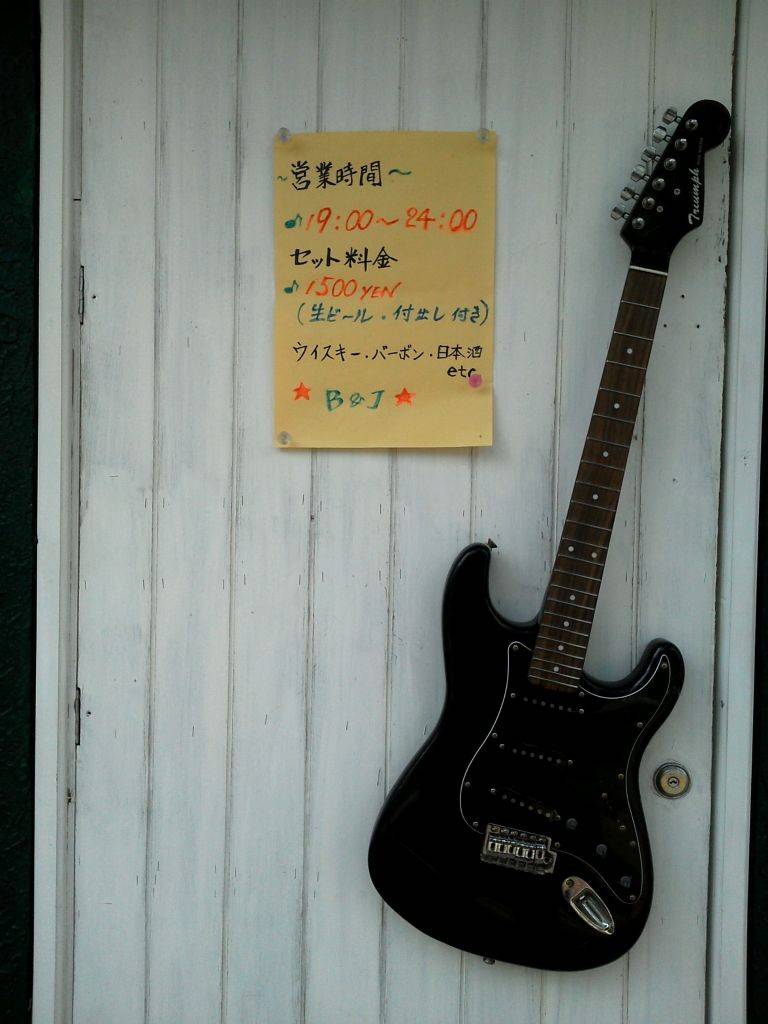 ~営業時間~
♪19:00~24:00
セット料金
♪1500YEN
(生ビール・付出し付き)
ウイスキー・バーボン・日本酒
etc
★ B&J ★
Triumph